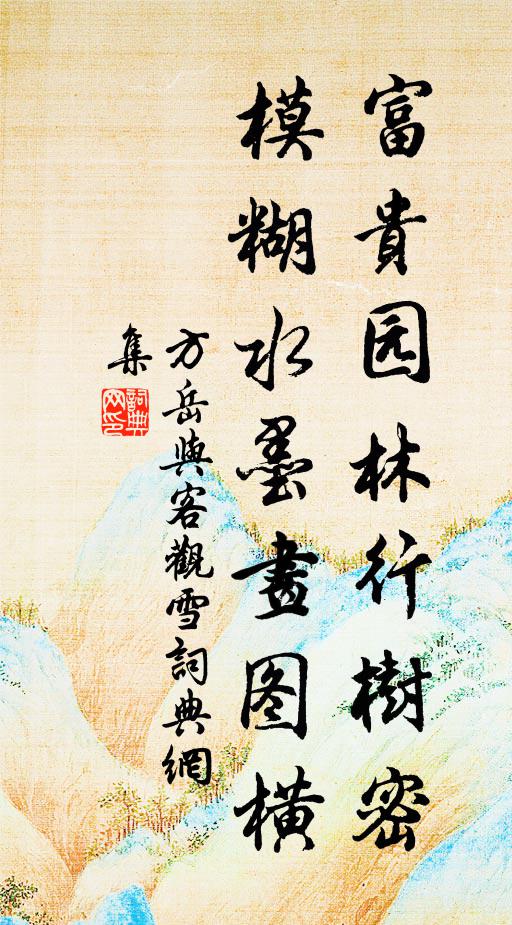 富貴园林行樹密
模糊水墨畫图橫
方岳與客觀雪詞典網
集
詞典
网印